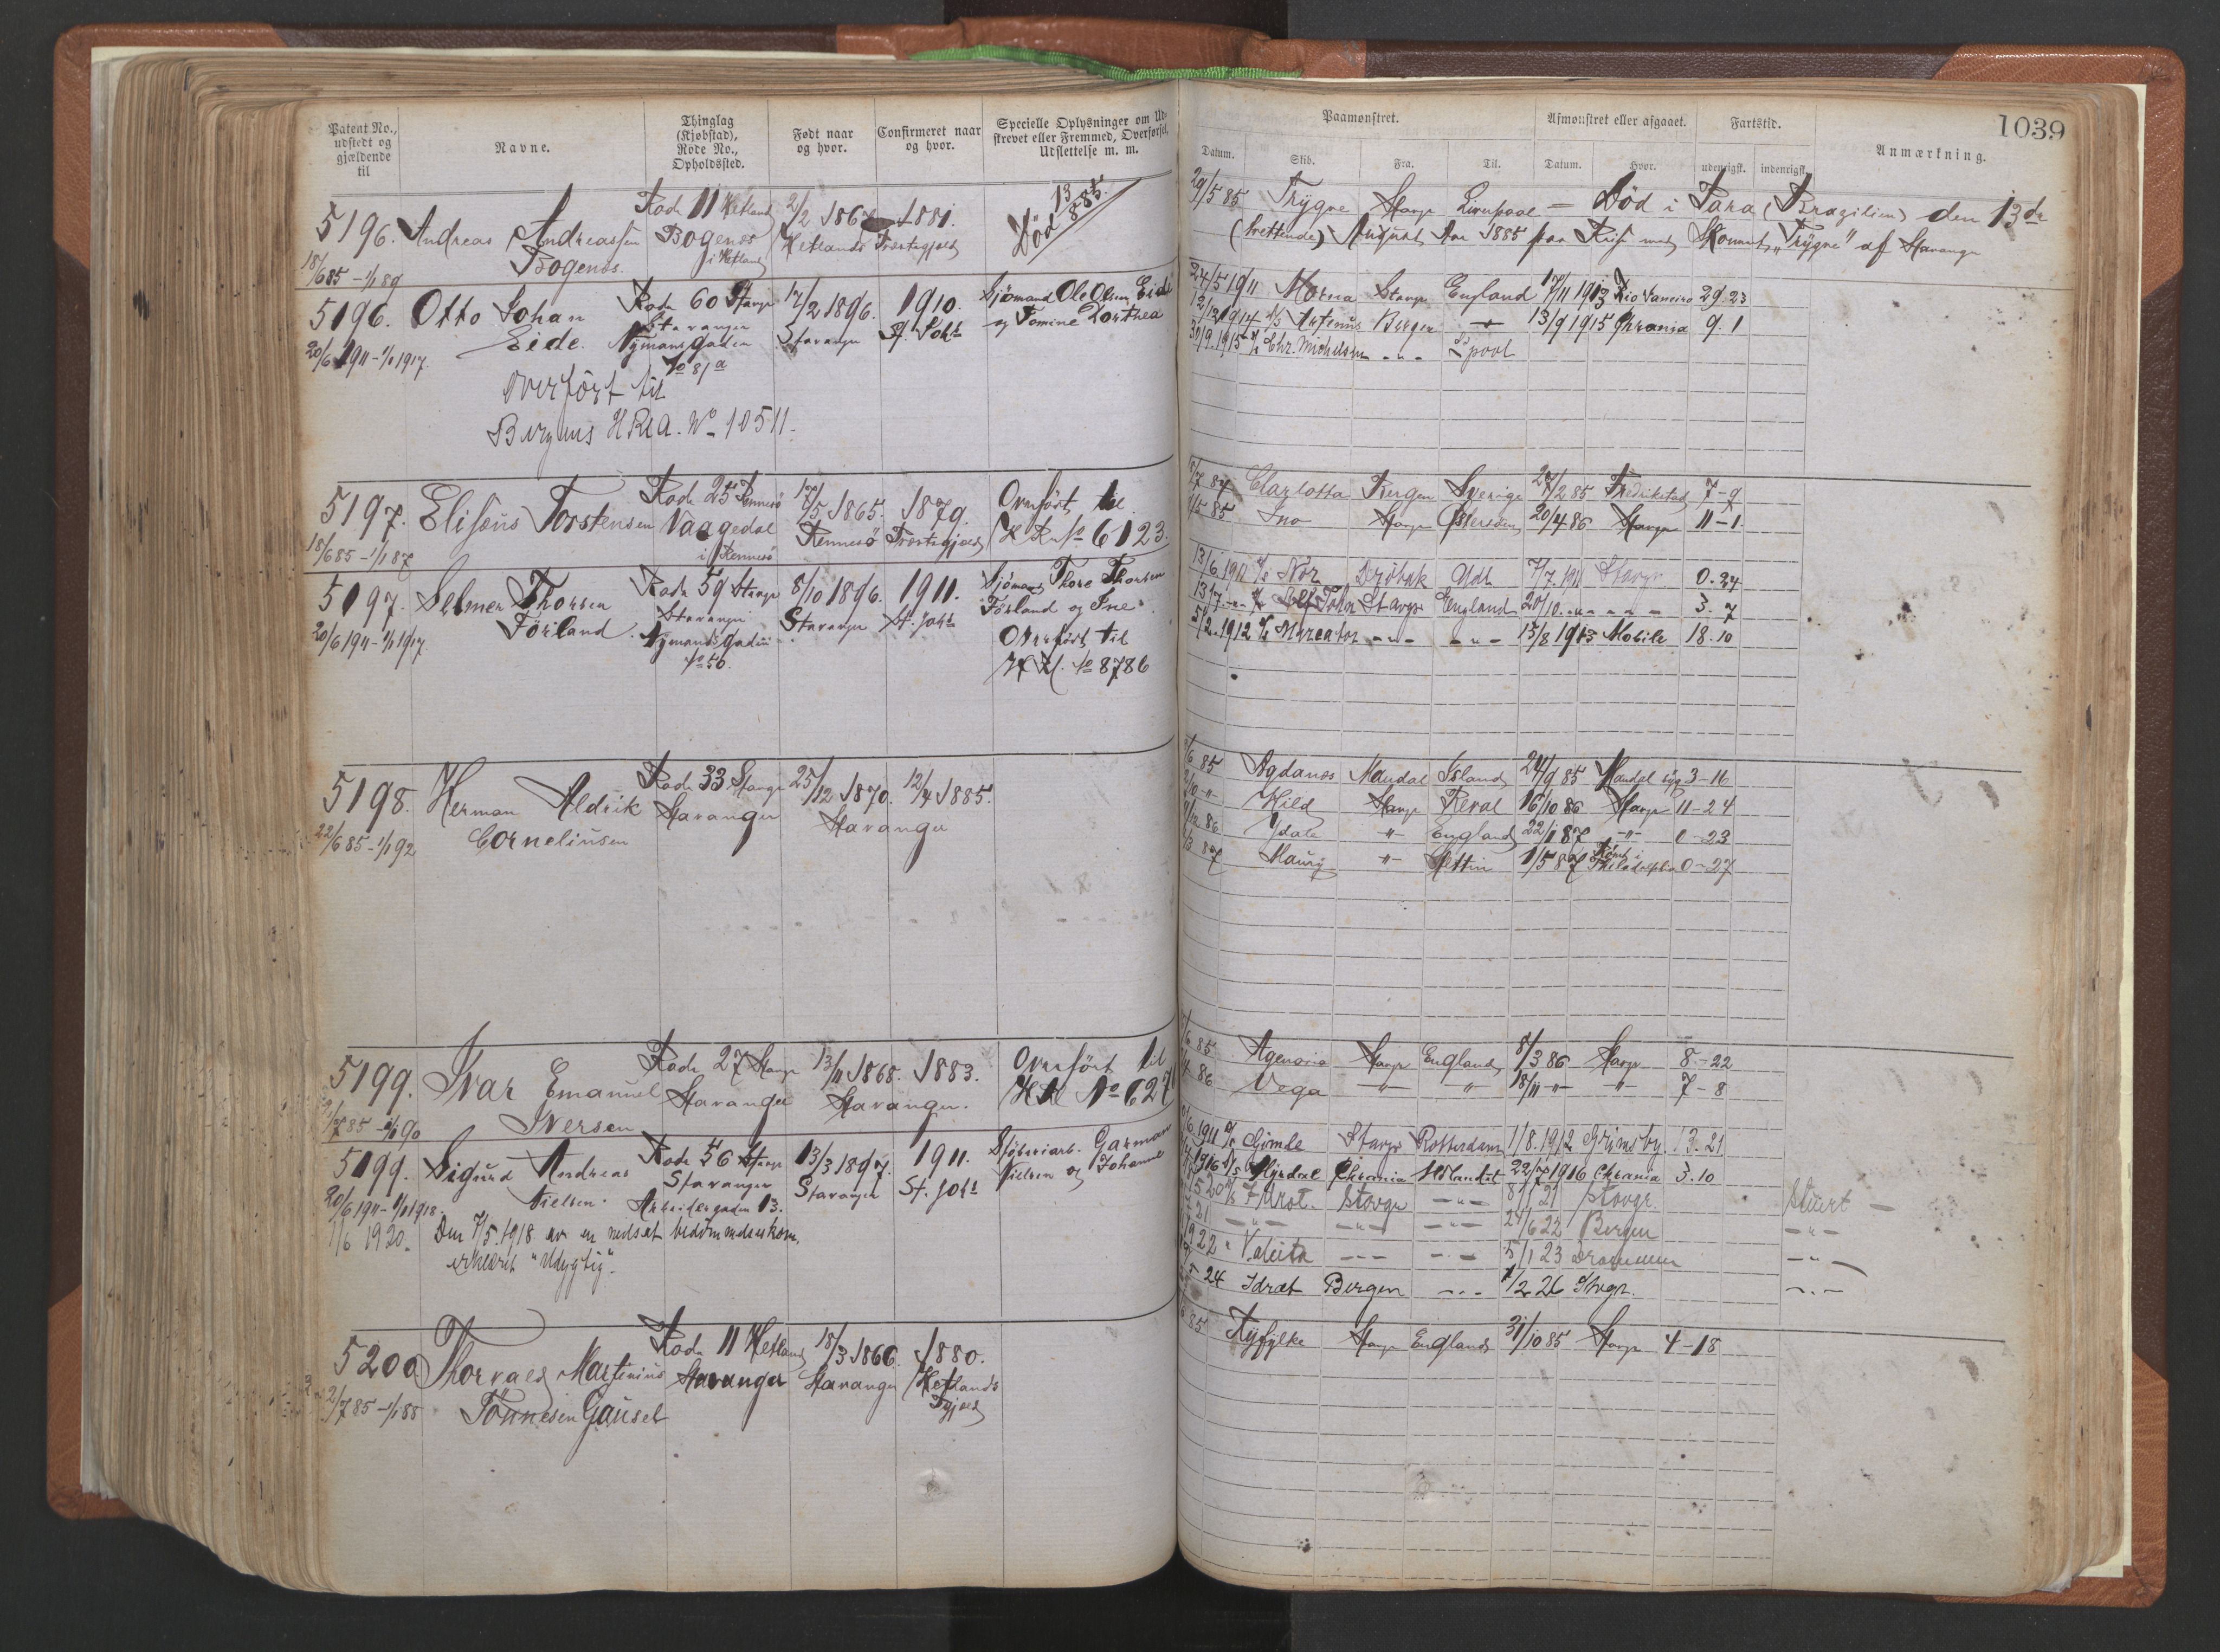 Patent No., udstedt og gjældende til
Navne.
Thinglag (Kjøbstad), Rode No., Opholdssted.
Født naar og hvor.
Confirmeret naar og hvor.
Specielle Oplysninger om Udskrevet eller Fremmed, Overførsel, Udslettelse m. m.
5196. Andreas Andreassen Rode 11 Hetland 2/2 1867 1881.
Bogenæs i Hetland Hetlands Præstegjæld Død 13/8 85.
18/6 85 - 1/1 89 Bogenæs.
5196. Otto Johan Rode 60 Stavgr 17/2 1896. 1910. Sjömand Ole Olsen Eide
Eide. Stavanger Stavanger St. Joh's og Tomine Dorthea
20/6 1911 - 1/1 1917. Nymansgaden No 81a
Overført til
Bergens H.R.A. No 10511.
5197. Elisæus Torstensen Rode 25 Rennesö 17/5 1865. 1879. Overført til
Vaagedal Rennesö Præstegjæld H R No 6123.
18/6 85 - 1/1 87 i Rennesö
5197. Selmer Thorsen Rode 59 Stavgr 8/10 1896. 1911. Sjömand Thore Thorsen
Förland. Stavanger Stavanger St. Joh's Förland og Ine.
20/6 1911 - 1/1 1917 Nymandsgaden No 50. Overført til
H Rl. No 8786
5198. Herman Aldrik Rode 33 Stavgr 25/12 1870. 12/4 1885.
Corneliusen Stavanger Stavanger
22/6 85 - 1/1 92
5199. Ivar Emanuel Rode 27 Stavgr 13/11 1868. 1883. Overført til
Iversen Stavanger Stavanger. H Rl No 627
/7 85 - 1/1 90
5199. Sigurd Andreas Rode 56 Stavgr 13/3 1897. 1911. Støberiarb. Garman
Nielsen. Stavanger Stavanger St. Joh's Nielsen og Johanne
20/6 1911 - 1/1 1918. Arbeidergaden 13.
1/6 1920. Den 7/5.1918 av en nedsat bedömmelseskom.
erklæret "Udygtig".
5200 Thorvald Martinius Rode 11 Hetland 18/3 1866. 1880.
Tönnesen Gausel Stavanger Stavanger Hetlands Pgjæld
2/7 85 - 1/1 88
1039
Paamønstret.
Afmønstret eller afgaaet.
Fartstid.
Anmærkning.
Datum. Skib. Fra. Til. Datum. Hvor. udenrigsk. indenrigsk.
29/5 85 Trygve Stavgr Liverpool — Död i Para (Brazilien) den 13de
(trettende) August Aar 1885 paa Reise med Skonnert "Trygve" af Stavanger
24/5 1911 Morna Stavgr England 17/11 1913 Rio Janeiro 29.23
12/12 1914 S/S Artemis Bergen — 13/9 1915 Chrania 9.1
30/9.1915 S/S Chr. Michelsen - " - Lpool
/7 84 Charlotta Bergen Sverige 24/2 85 Fredrikstad 7-9
1/5 85 Ino Stavgr Østersøen 20/4 86 Stavgr 11-1.
13/6 1911 Nor Drøbak Udl. 7/7.1911 Stavgr. 0.24
13/7 - " - John Stavgr England 20/10 - " - - " - 3.7
5/2 1912 Mercator - " - - " - 15/8 1913 Mobile 18.10
/6 85 Agdanæs Mandal Island 24/9 85 Mandal syg 3-16
/10 " Hild Stavgr Reval 16/10 86 Stavgr 11-24
/12 86 Ydale " England 22/1 87 - " - 0-23
/3 87 Maury " Stettin 1/5 87 Römt i Philadelphia 0-27
/6 85 Agenoria Stavgr England 8/3 86 Stavgr 8.-22
/4 86 Vega " " 18/11 " " 7-8
/6 1911 Gimle Stavgr Rotterdam 1/8.1912 Grimsby. 13.21
1916 Chrania 22/7 1916 Chrania 3.10
5 20 Stavgr - " - 8/1 21 Stavgr. Stuert
21 - " - - " - - " - 24/6 22 Bergen - " -
1922 " - " - - " - 5/1 23 Drammen - " -
24 Idræt Bergen - " - 1/2 26 Stvgr. - " -
85 Ryfylke Stavgr England 31/10 85 Stavgr 4-18